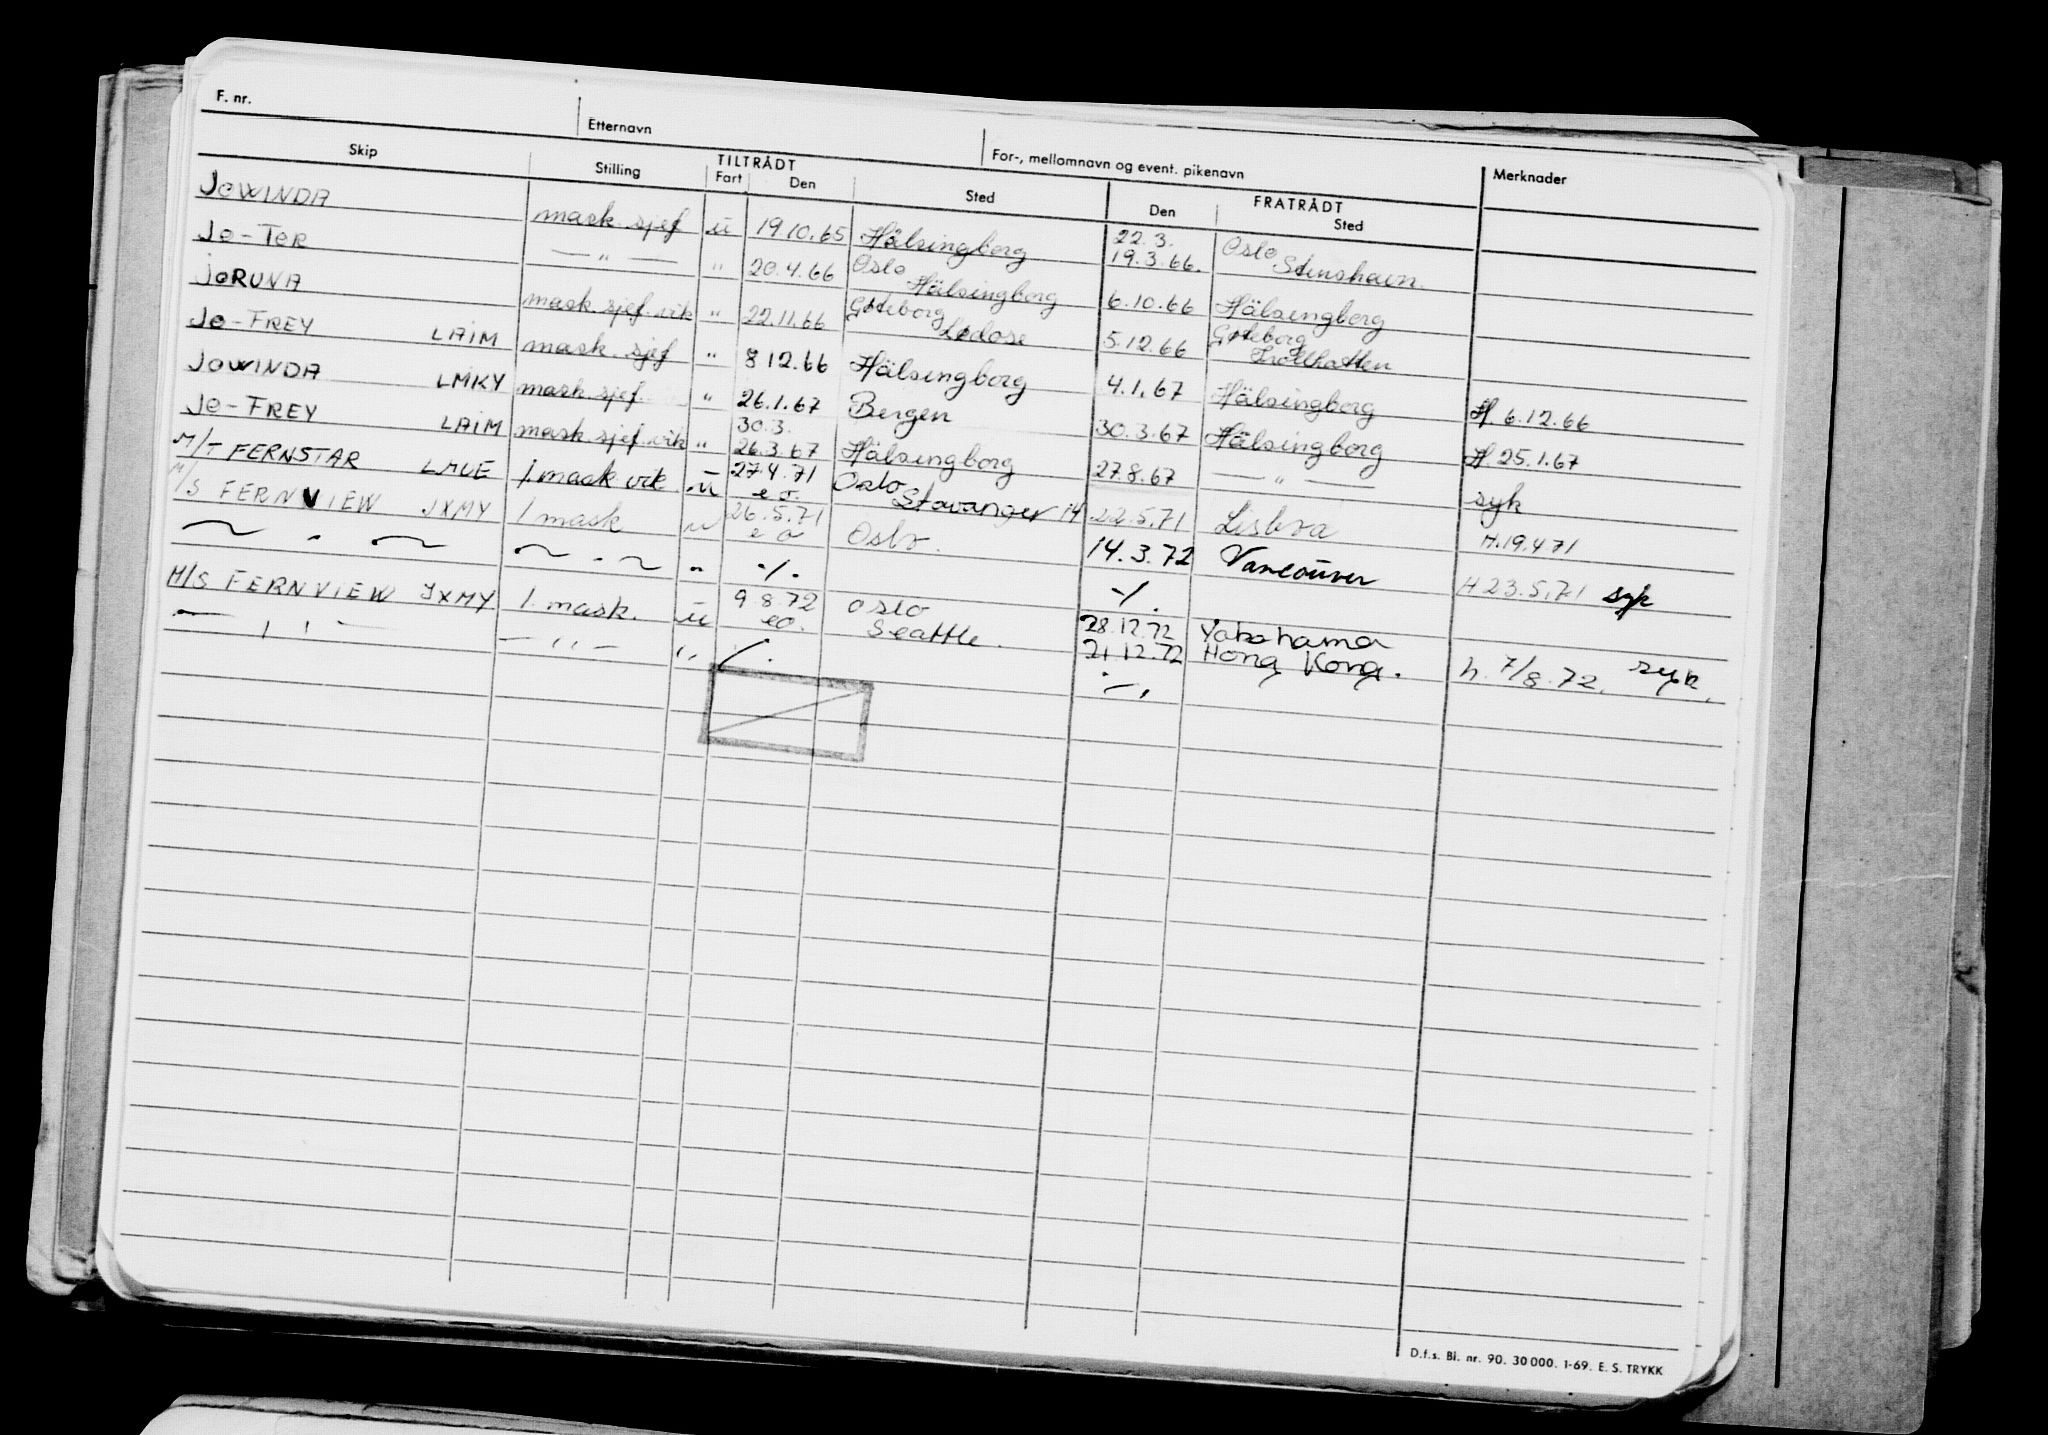 F. nr. Etternavn For-, mellomnavn og event. pikenavn
Skip Stilling TILTRÅDT FRATRÅDT Merknader
Fart Den Sted Den Sted
JOWINDA mask. sjef u 19.10.65 Hälsingborg 22.3. Oslo
19.3.66. Stenshavn
JO-TOR — " — " 20.4.66 Oslo
Hälsingborg 6.10.66 Hälsingborg
JORUNA mask. sjef. vik " 22.11.66 Göteborg
Lødøse 5.12.66 Göteborg
Trollhatten
JO-FREY LAIM mask. sjef " 8 12.66 Hälsingborg 4.1.67 Hälsingborg H. 6.12.66
JOWINDA LMKY mask. sjef. " 26.1.67 Bergen 30.3.67 Hälsingborg H. 25.1.67
JO-FREY LAIM mask. sjef. vik " 30.3.
26.3.67 Hälsingborg 27.8.67 — " — syk
M/T FERNSTAR LMUE 1. mask vik u 27.4.71 Oslo
e o. Stavanger 14 22.5.71 Lisboa H. 19.4.71
M/S FERNVIEW JXMY 1 mask u 26.5.71
e o Oslo. 14.3.72 Vancouver H 23.5.71 syk
~ " ~ ~ " ~ " ./. ./.
M/S FERNVIEW JXMY 1. mask. u 9 8.72 Oslo
eo. Seattle. 28.12.72 Yokohama
21 12.72 Hong Kong. h. 7/8.72. syk.
— ' ' — — ' ' — " ./. ./.
D.f.s. Bl. nr. 90. 30000. 1-69. E. S. TRYKK